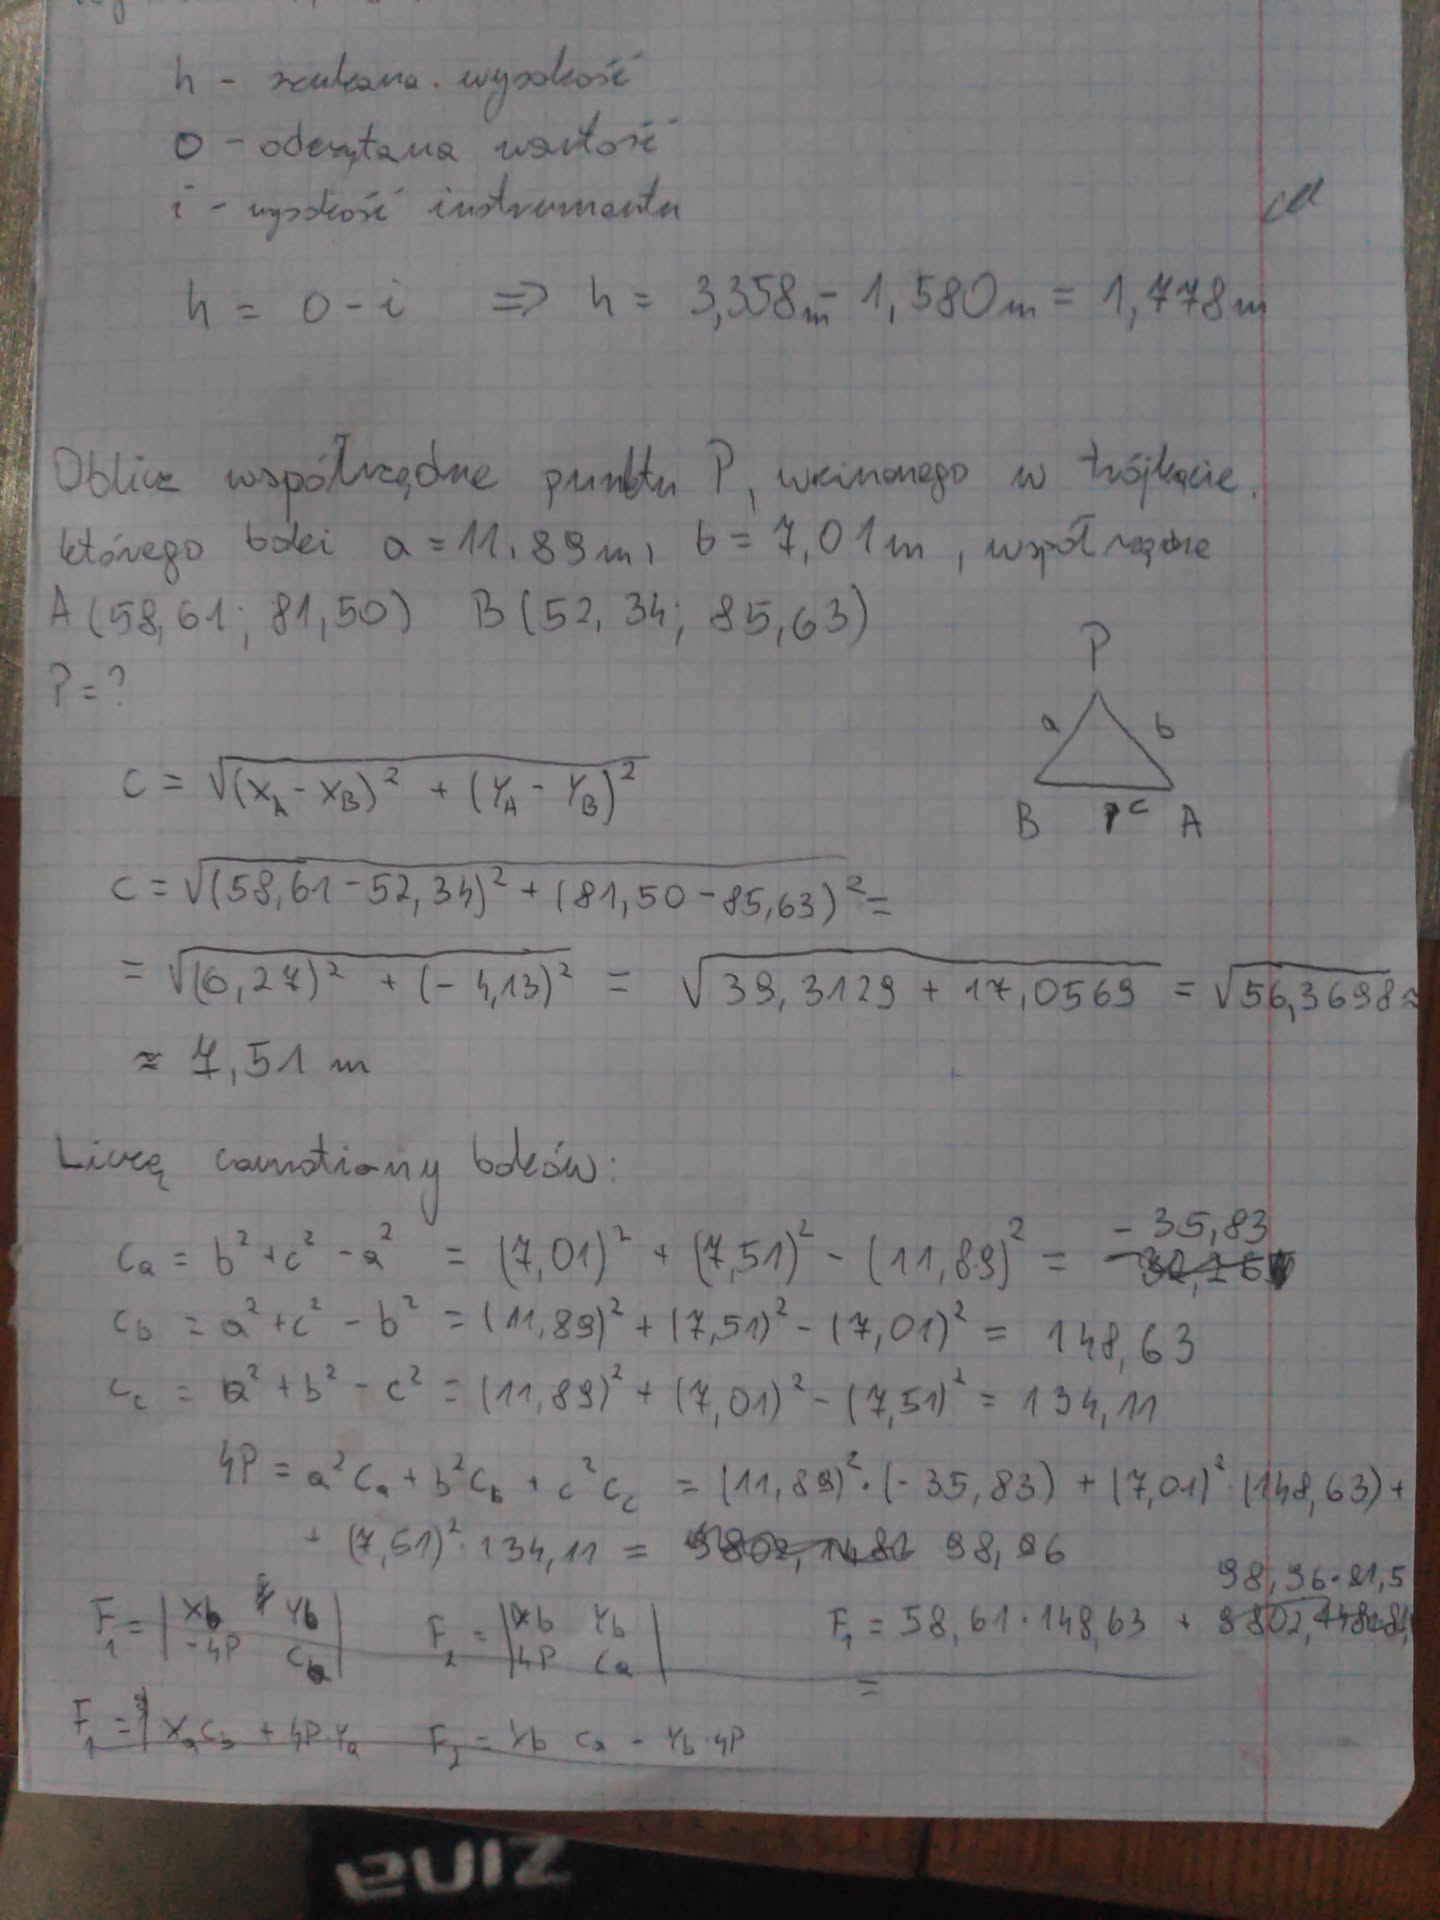 h - szukana wysokość
O - odczytana wartość
i - wysokość instrumentu
h = O - i => h = 3,358m - 1,580m = 1,778m
Oblicz współrzędne punktu P, wcinanego w trójkącie,
którego boki a = 11,89m, b = 7,01m, współrzędne
A (58,61; 81,50) B (52,34; 85,63)
P = ?
P
a b
B c A
c = √((X_A - X_B)² + (Y_A - Y_B)²)
c = √((58,61 - 52,34)² + (81,50 - 85,63)²) =
= √((6,27)² + (-4,13)²) = √(39,3129 + 17,0569) = √56,3698 ≈
≈ 7,51 m
Liczę carnotiany boków:
- 35,83
Ca = b² + c² - a² = (7,01)² + (7,51)² - (11,89)² =
Cb = a² + c² - b² = (11,89)² + (7,51)² - (7,01)² = 148,63
Cc = a² + b² - c² = (11,89)² + (7,01)² - (7,51)² = 134,11
4P = a²Ca + b²Cb + c²Cc = (11,89)² · (-35,83) + (7,01)² · (148,63) +
+ (7,51)² · 134,11 = 98,96
98,96 · 81,5
F₁ = | Xb Yb | F₂ = | Xb Yb | F₁ = 58,61 · 148,63 +
-4P Cb 4P Ca =
F₁ = XaCb + 4P·Ya F₂ = Xb Ca - Yb·4P
zina